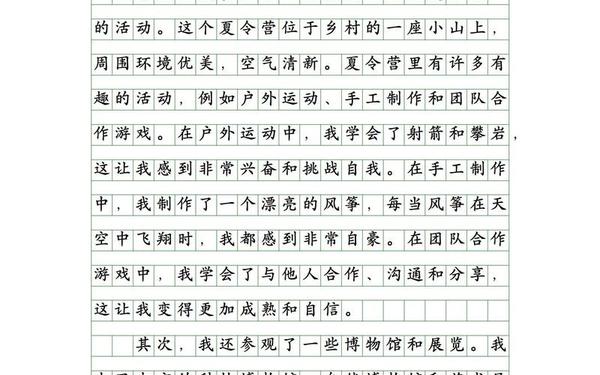 的活动。这个夏令营位于乡村的一座小山上，
周围环境优美，空气清新。夏令营里有许多有
趣的活动，例如户外运动、手工制作和团队合
作游戏。在户外运动中，我学会了射箭和攀岩，
这让我感到非常兴奋和挑战自我。在手工制作
中，我制作了一个漂亮的风筝，每当风筝在天
空中飞翔时，我都感到非常自豪。在团队合作
游戏中，我学会了与他人合作、沟通和分享，
这让我变得更加成熟和自信。
其次，我还参观了一些博物馆和展览。我